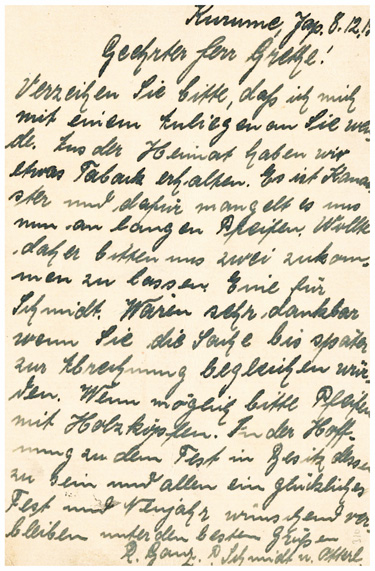 Kurume, Jap. 8.12.
Geehrter Herr Grethe!
Verzeihen Sie bitte, daß ich mich
mit einem Anliegen an Sie wen
de. Aus der Heimat haben wir
etwas Taback erhalten. Es ist Kana
ster und dafür mangelt es uns
nun an langen Pfeifen. Wollte
daher bitten uns zwei zukom-
men zu lassen. Eine für
Schmidt. Wären sehr dankbar
wenn Sie die Sache bis später
zur Abrechnung begleichen wür
den. Wenn möglich bitte Pfeifen
mit Holzköpfen. In der Hoff-
nung zu dem Fest in Besitz dessen
zu sein und allen ein glückliches
Fest und Neujahr wünschend ver
bleiben unter den besten Grüßen
R. Ganz. P. Schmidt u.